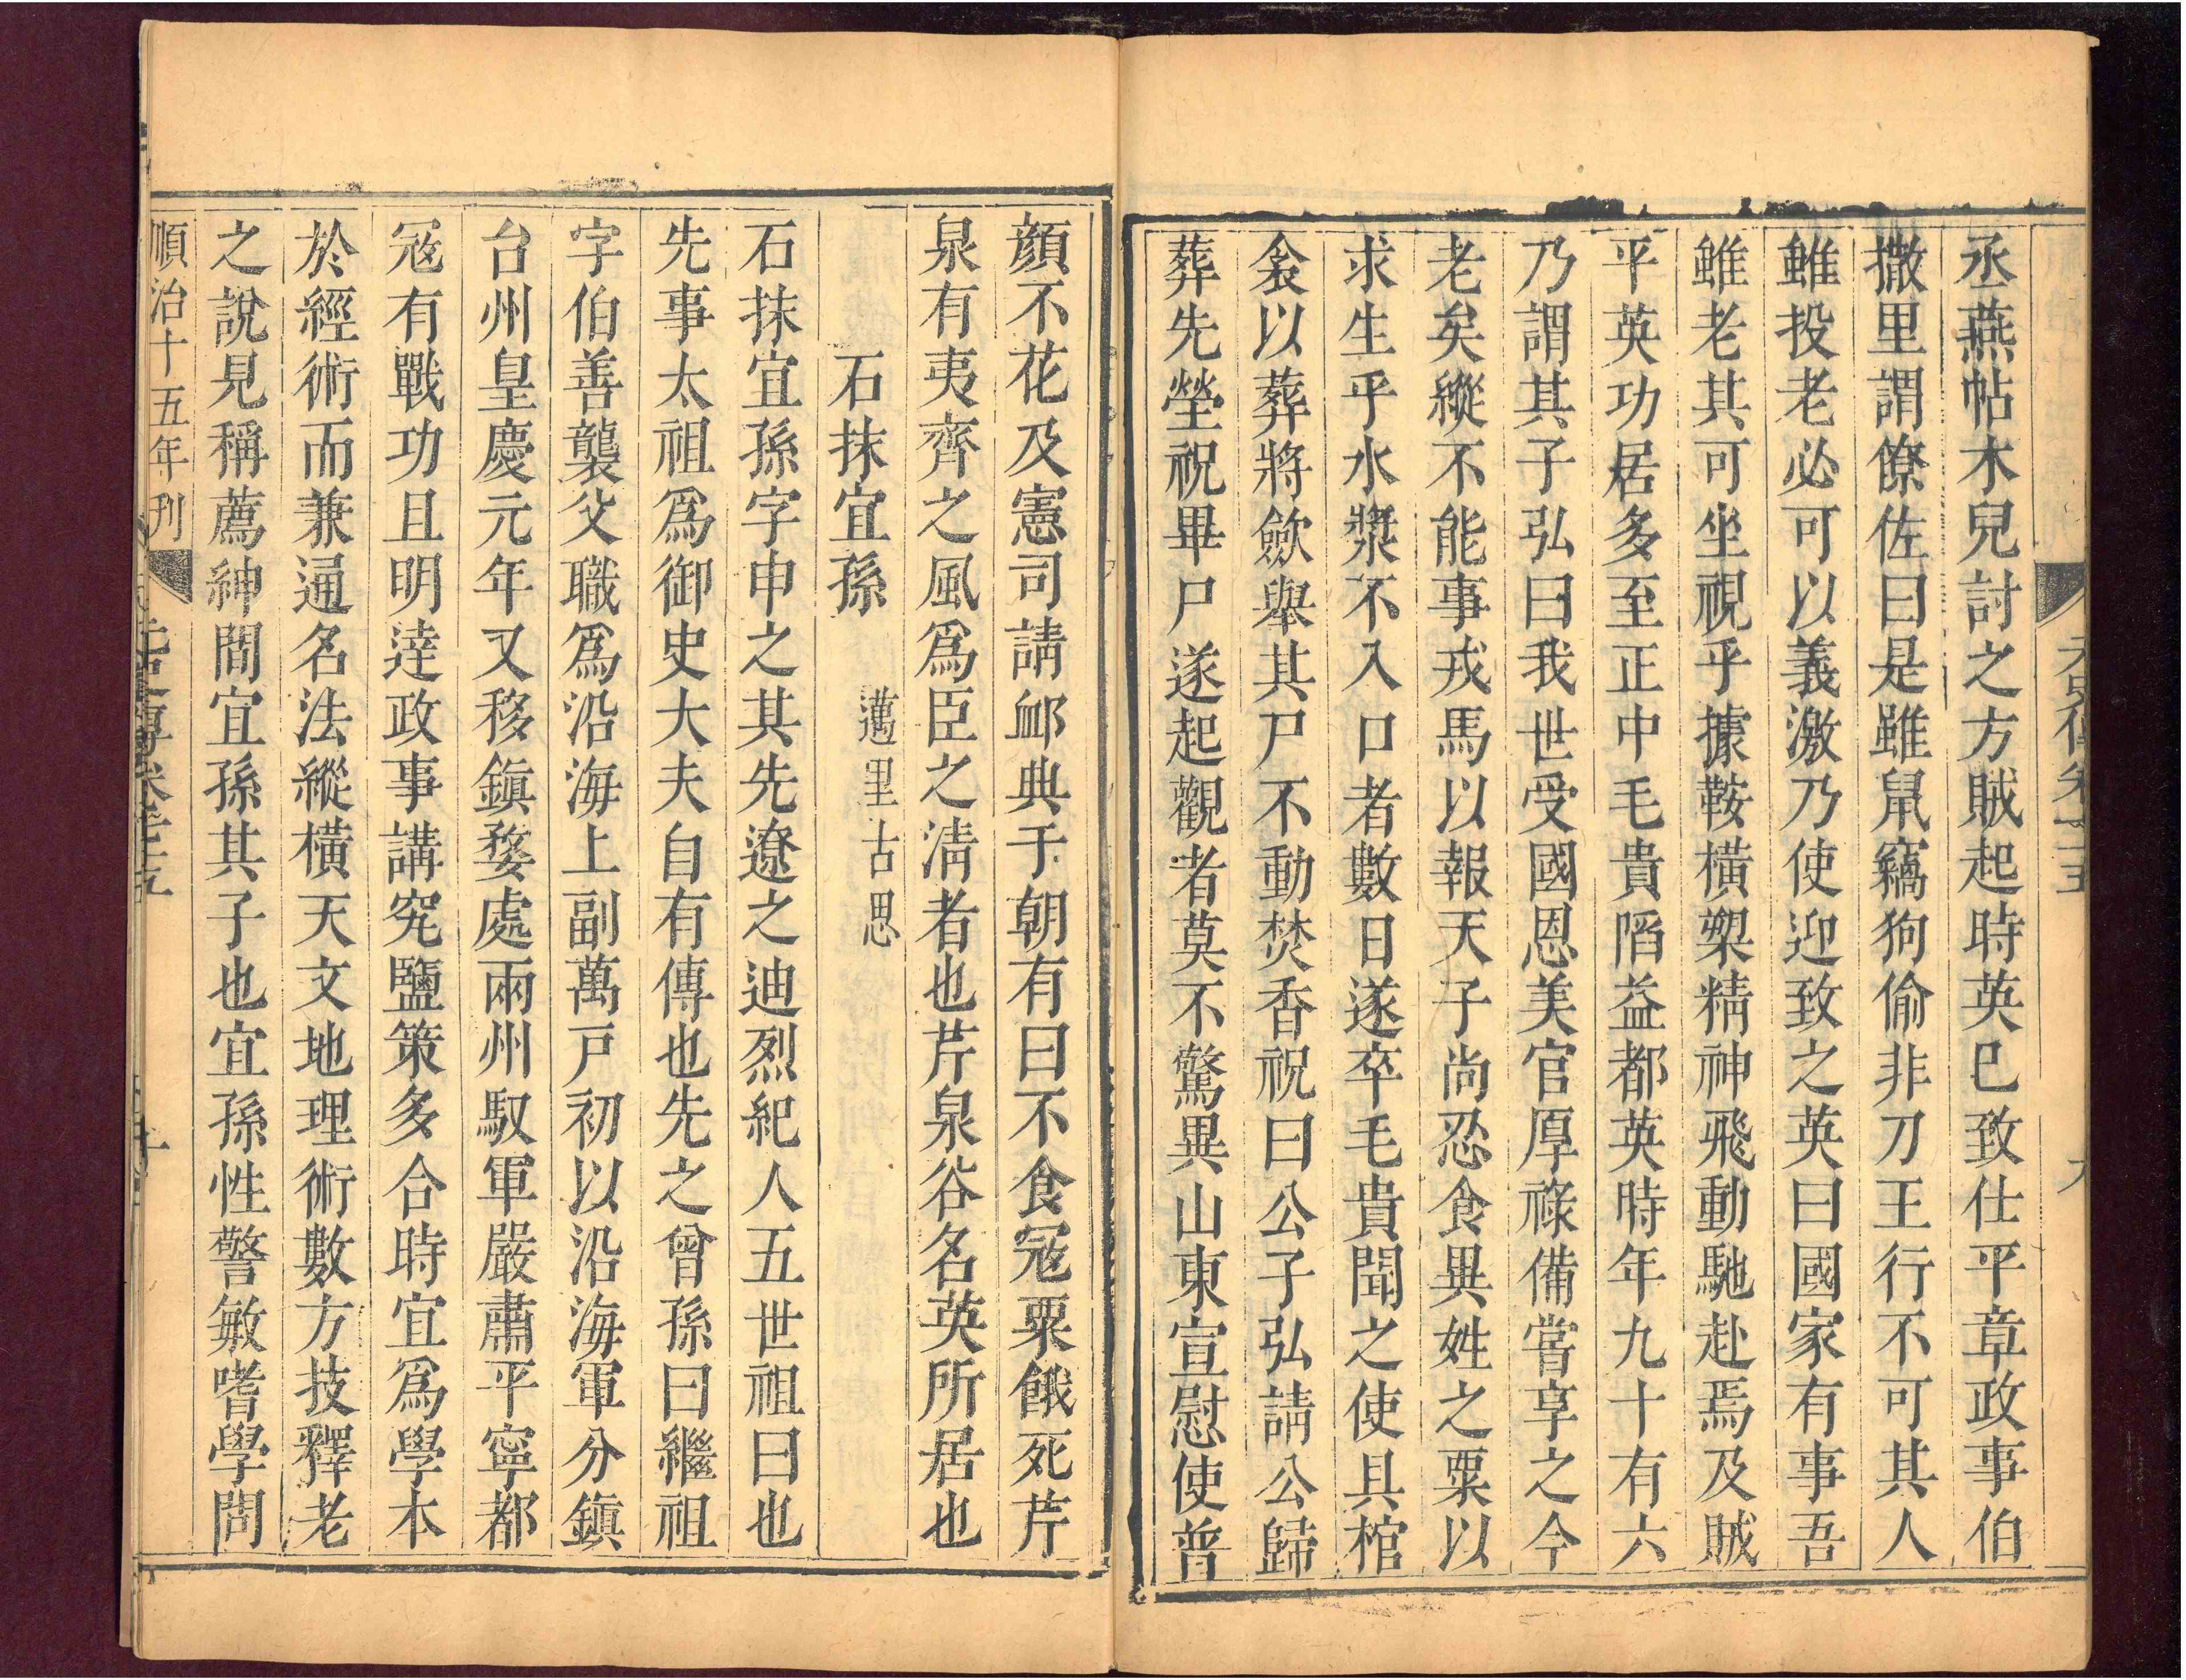 丞燕帖木兒討之方賊起時英已致仕平章政事伯
撒里謂僚佐曰是雖鼠竊狗偷非刀王行不可其人
雖投老必可以義激乃使迎致之英曰國家有事吾
雖老其可坐視乎據鞍橫槊精神飛動馳赴焉及賊
平英功居多至正中毛貴陷益都英時年九十有六
乃謂其子弘曰我世受國恩美官厚祿備嘗享之今
老矣縱不能事戎馬以報天子尚忍食異姓之粟以
求生乎水漿不入口者數日遂卒毛貴聞之使具棺
衾以葬將歛舉其尸不動焚香祝曰公子弘請公歸
葬先塋祝畢尸遂起觀者莫不驚異山東宣慰使普
顏不花及憲司請䘏典于朝有曰不食寇粟餓死芹
泉有夷齊之風爲臣之清者也芹泉谷名英所居也
石抹宜孫
邁里古思
石抹宜孫字申之其先遼之迪烈紀人五世祖曰也
先事太祖爲御史大夫自有傳也先之曾孫曰繼祖
字伯善襲父職爲沿海上副萬戸初以沿海軍分鎭
台州皇慶元年又移鎭婺處兩州馭軍嚴肅平寧都
寇有戰功且明達政事講究鹽策多合時宜爲學本
於經術而兼通名法縱橫天文地理術數方技釋老
之說見稱薦紳閒宜孫其子也宜孫性警敏嗜學問
順治十五年刊